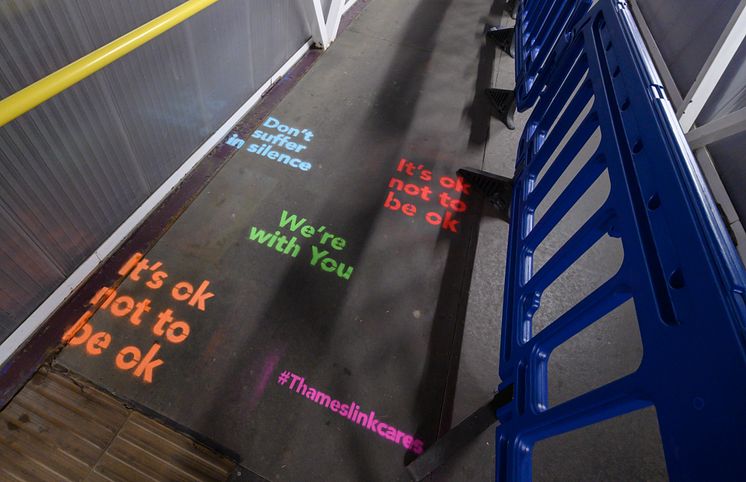 Don't
suffer
in silence
It's ok
not to
be ok
We're
with You
It's ok
not to
be ok
#Thameslinkcares